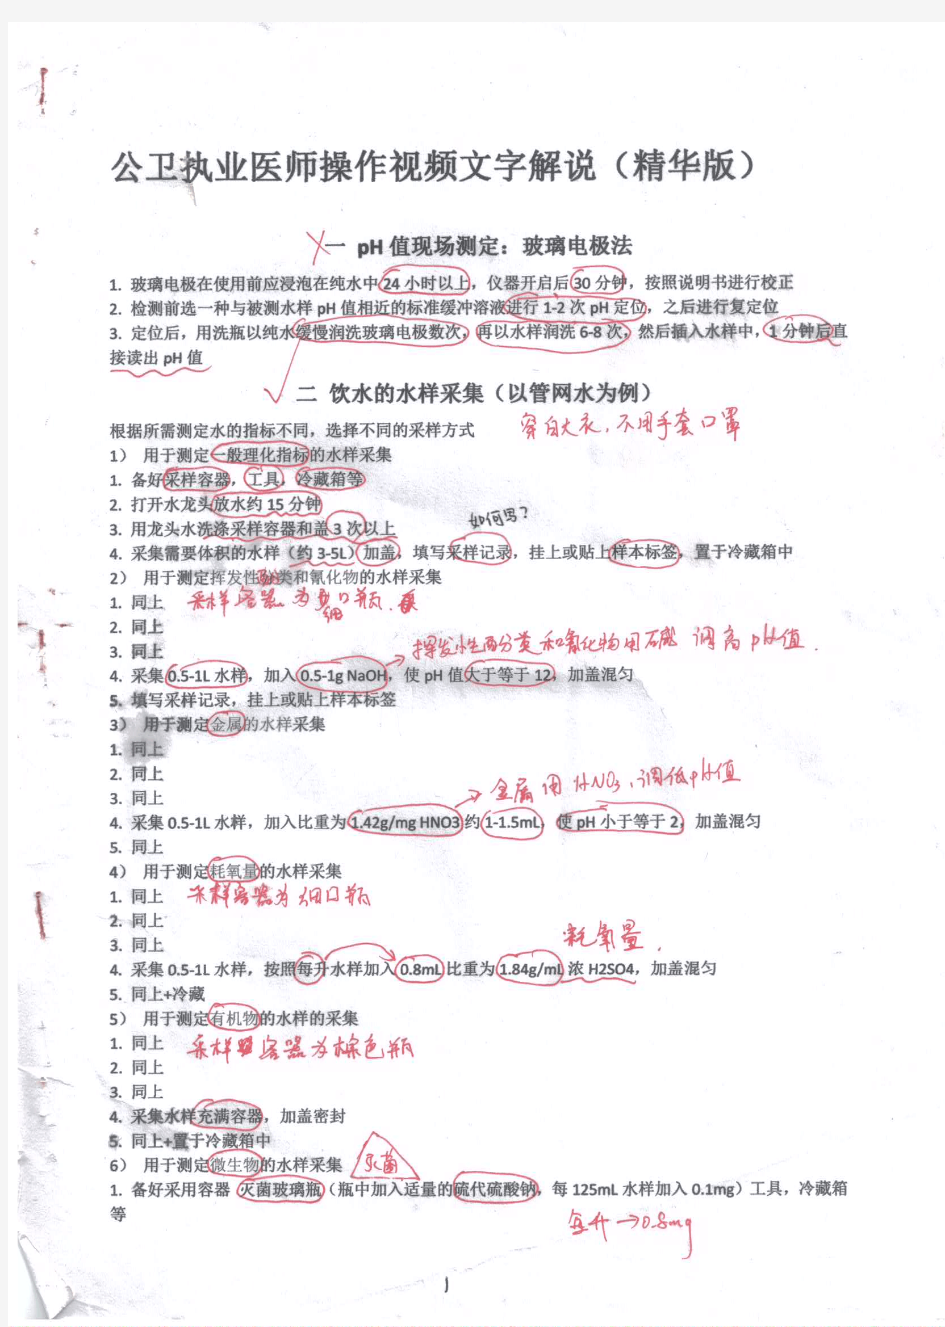 公卫执业医师操作视频文字解说（精华版）
一 pH 值现场测定：玻璃电极法
1. 玻璃电极在使用前应浸泡在纯水中 24 小时以上，仪器开启后 30 分钟，按照说明书进行校正
2. 检测前选一种与被测水样 pH 值相近的标准缓冲溶液进行 1-2 次 pH 定位，之后进行复定位
3. 定位后，用洗瓶以纯水缓慢润洗玻璃电极数次，再以水样润洗 6-8 次，然后插入水样中，1 分钟后直
接读出 pH 值
二 饮水的水样采集（以管网水为例）
根据所需测定水的指标不同，选择不同的采样方式
穿白大衣，不用手套口罩
1） 用于测定一般理化指标的水样采集
1. 备好采样容器，工具，冷藏箱等
2. 打开水龙头放水约 15 分钟
3. 用龙头水洗涤采样容器和盖 3 次以上
如何写？
4. 采集需要体积的水样（约 3-5L）加盖，填写采样记录，挂上或贴上样本标签，置于冷藏箱中
2） 用于测定挥发性酚类和氰化物的水样采集
1. 同上
采样容器为细口瓶
2. 同上
3. 同上
挥发性酚类和氰化物用碱 调高pH值.
4. 采集 0.5-1L 水样，加入 0.5-1g NaOH，使 pH 值大于等于 12，加盖混匀
5. 填写采样记录，挂上或贴上样本标签
3） 用于测定金属的水样采集
1. 同上
2. 同上
3. 同上
金属用HNO3，调低pH值
4. 采集 0.5-1L 水样，加入比重为 1.42g/mg HNO3 约 1-1.5mL，使 pH 小于等于 2，加盖混匀
5. 同上
4） 用于测定耗氧量的水样采集
1. 同上
采样容器为细口瓶
2. 同上
3. 同上
耗氧量.
4. 采集 0.5-1L 水样，按照每升水样加入 0.8mL 比重为 1.84g/mL 浓 H2SO4，加盖混匀
5. 同上+冷藏
5） 用于测定有机物的水样的采集
1. 同上
采样容器为棕色瓶
2. 同上
3. 同上
4. 采集水样充满容器，加盖密封
5. 同上+置于冷藏箱中
6） 用于测定微生物的水样采集
灭菌
1. 备好采用容器 灭菌玻璃瓶（瓶中加入适量的硫代硫酸钠，每 125mL 水样加入 0.1mg）工具，冷藏箱
等
每升→0.8mg
1